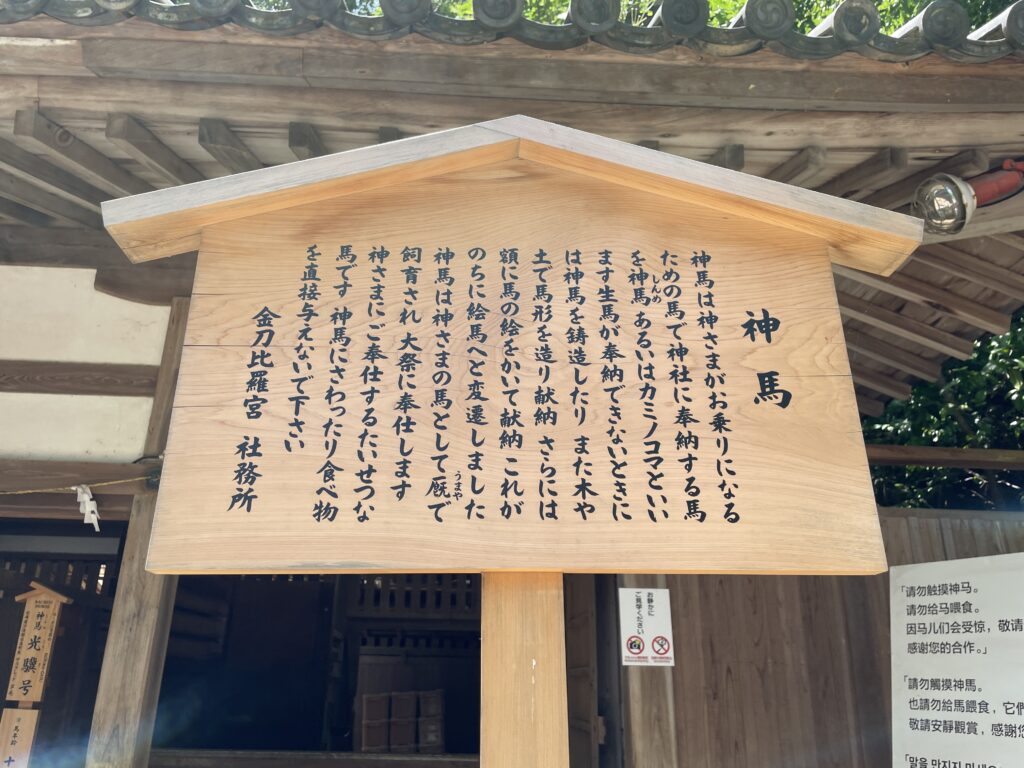 神馬
神馬は神さまがお乗りになる
ための馬で神社に奉納する馬
を神馬 あるいはカミノコマといい
しんめ
ます生馬が奉納できないときに
は神馬を鋳造したり また木や
土で馬形を造り献納 さらには
額に馬の絵をかいて献納 これが
のちに絵馬へと変遷しました
神馬は神さまの馬として厩で
うまや
飼育され 大祭に奉仕します
神さまにご奉仕するたいせつな
馬です 神馬にさわったり食べ物
を直接与えないで下さい
金刀比羅宮 社務所
お静かに
ご見学ください
请勿触摸神马。
请勿给马喂食。
因马儿们会受惊，敬请
感谢您的合作。」
「請勿觸摸神馬。
也請勿給馬餵食，它們
敬請安靜觀賞，感謝您
「말을 만지지 마세
神馬 光驥号